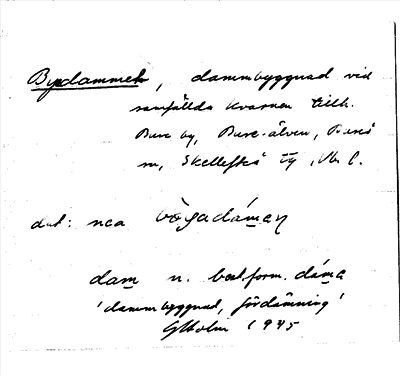 Bydammen, dammbyggnad vid
samfällda kvarnen tillh.
Bure by, Bure-älven, Bureå
sn, Skellefteå tg, Vb l.
dat: nca bȯgadámen
dam n. best. form. dáma
'dammbyggnad, fördämning'
GHolm 1945